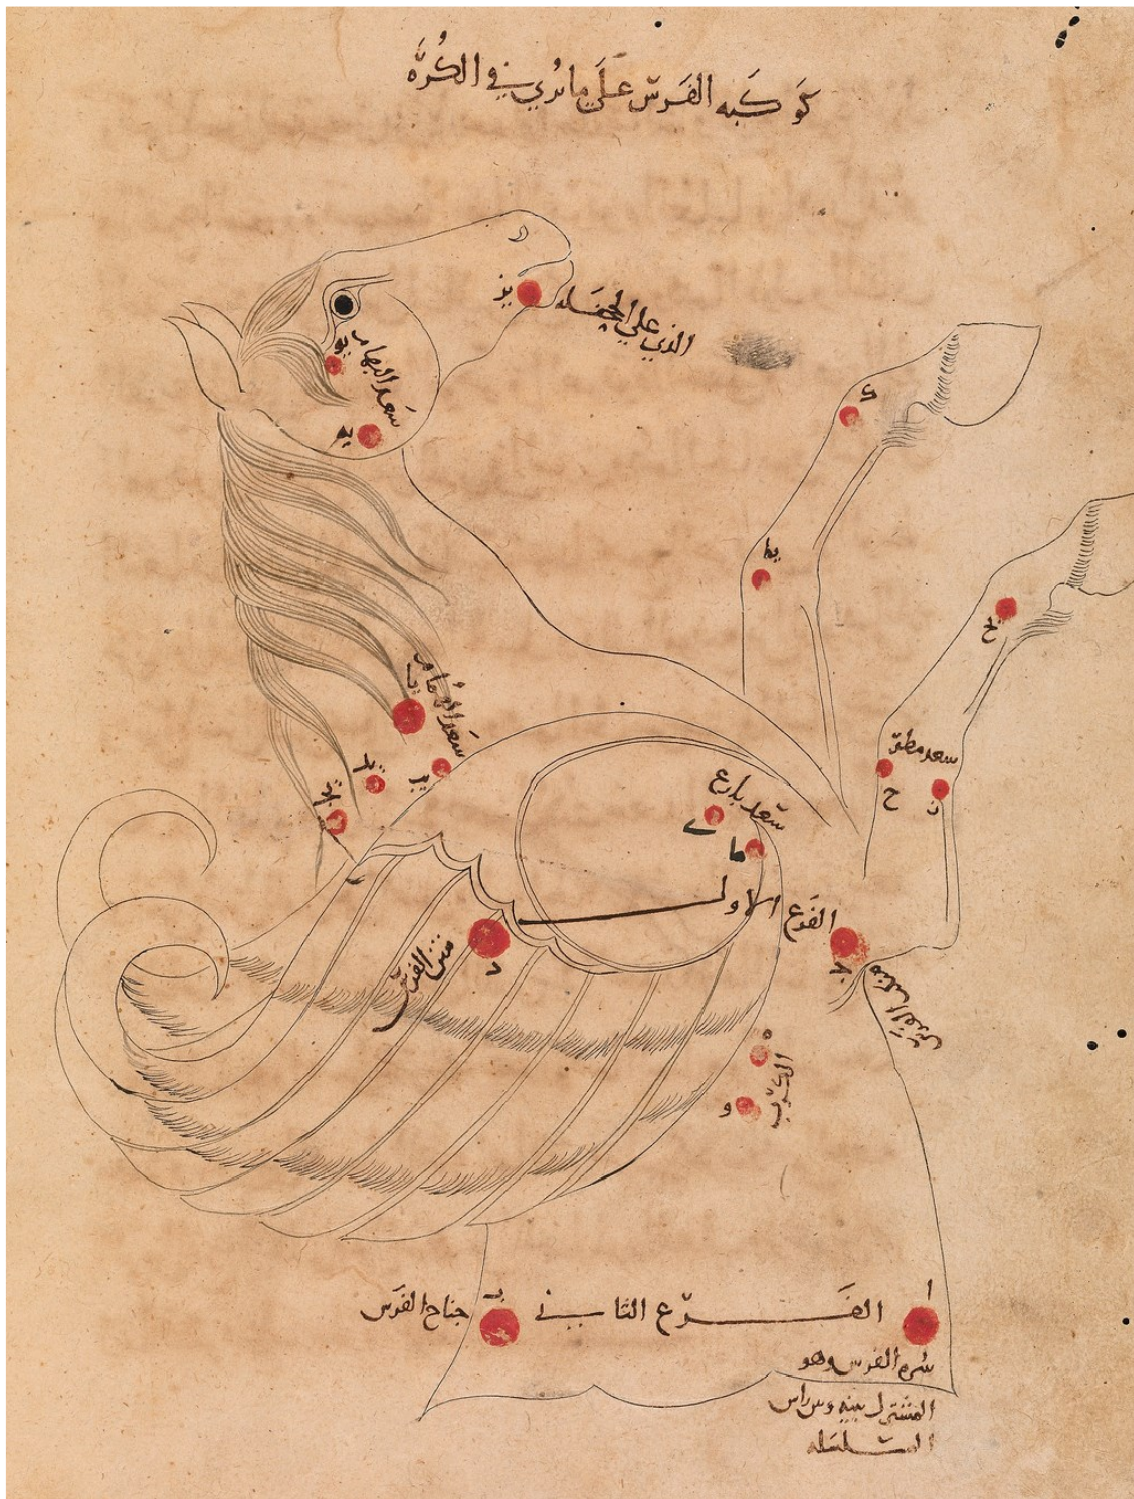 كوكبه الفرس على ما يرى في الكره
يز
الذي على الجحفله
يو
سعد البهام
يه
ك
يط
يح
يا
سعد الهمام
يب
يد
يج
سعد مطر
ح
ط
سعد بارع
ى
الفرغ الاول
د
متن الفرس
ج
منكب الفرس
ه
و
الكرب
ا
ب
الفرغ الثاني
جناح الفرس
سره الفرس وهو
المشترك بينه وبين راس
المسلسله